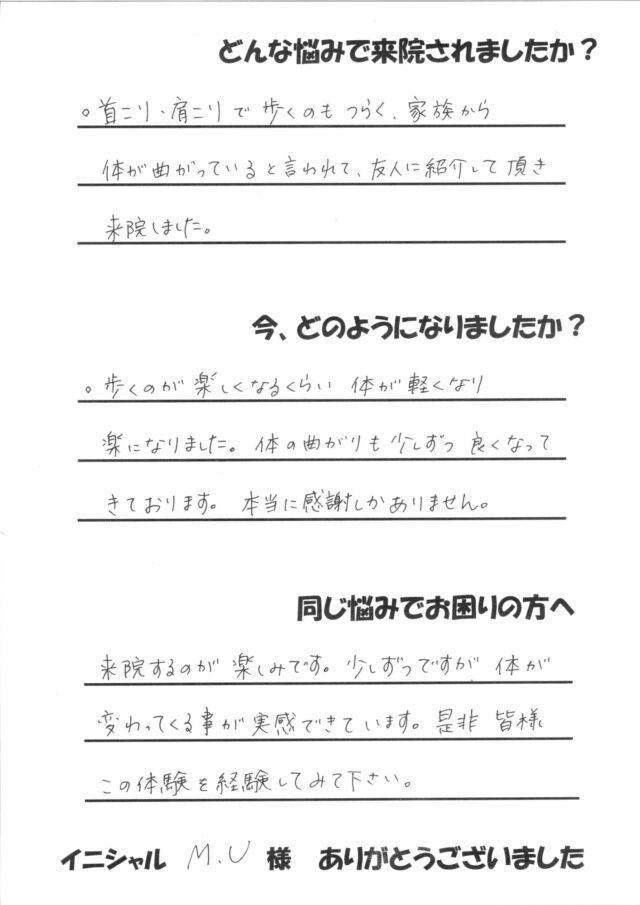 どんな悩みで来院されましたか？
。首こり・肩こりで歩くのもつらく、家族から
体が曲がっていると言われて、友人に紹介して頂き
来院しました。
今、どのようになりましたか？
。歩くのが楽しくなるくらい体が軽くなり
楽になりました。体の曲がりも少しずつ良くなって
きております。本当に感謝しかありません。
同じ悩みでお困りの方へ
来院するのが楽しみです。少しずつですが体が
変わってくる事が実感できています。是非皆様
この体験を経験してみて下さい。
イニシャル M.U 様 ありがとうございました